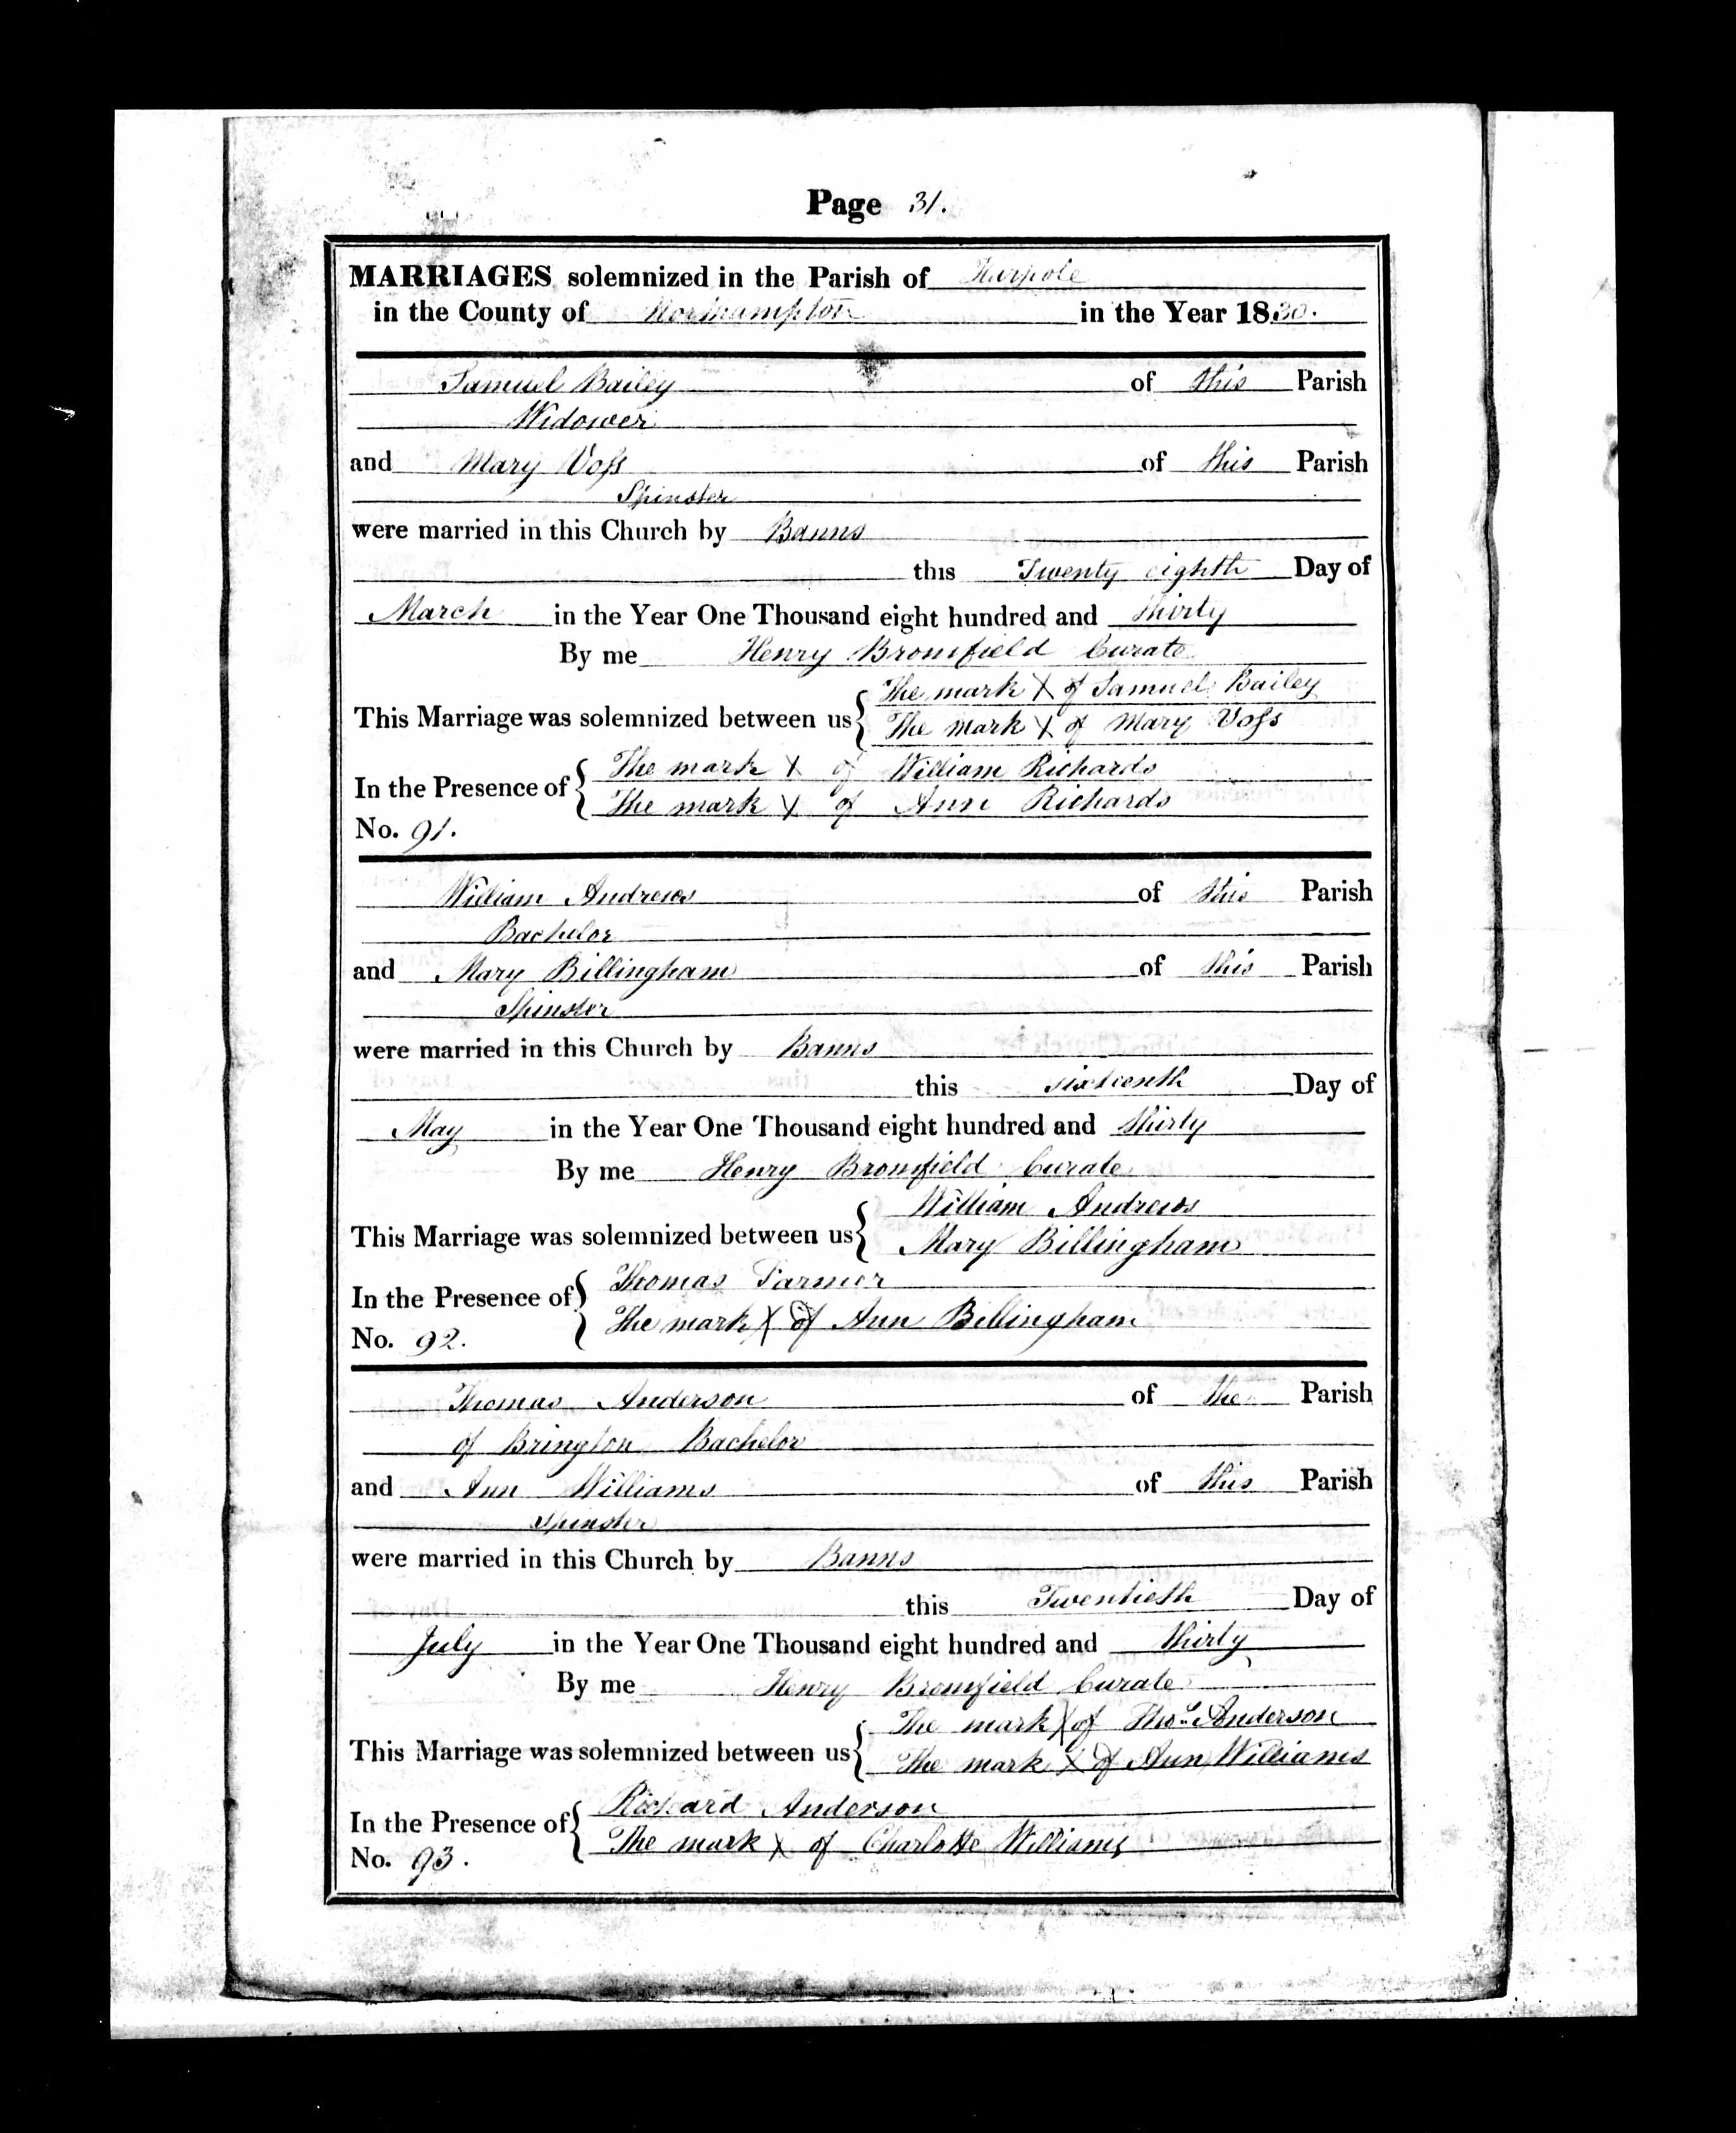 Page 31.
MARRIAGES solemnized in the Parish of Harpole
in the County of Northampton in the Year 1830.
Samuel Bailey of this Parish
Widower
and Mary Voſs of this Parish
Spinster
were married in this Church by Banns
this Twenty eighth Day of
March in the Year One Thousand eight hundred and thirty
By me Henry Bromfield Curate
The mark X of Samuel Bailey
This Marriage was solemnized between us
The mark X of Mary Voſs
The mark X of William Richards
In the Presence of
The mark X of Ann Richards
No. 91.
William Andrews of this Parish
Bachelor
and Mary Billingham of this Parish
Spinster
were married in this Church by Banns
this sixteenth Day of
May in the Year One Thousand eight hundred and thirty
By me Henry Bromfield Curate
William Andrews
This Marriage was solemnized between us
Mary Billingham
Thomas
In the Presence of
The mark X of Ann Billingham
No. 92.
Thomas Anderson of the Parish
of Brington Bachelor
and Ann Williams of this Parish
Spinster
were married in this Church by Banns
this Twentieth Day of
July in the Year One Thousand eight hundred and thirty
By me Henry Bromfield Curate
The mark X of Thos. Anderson
This Marriage was solemnized between us
The mark X of Ann Williams
Richard Anderson
In the Presence of
The mark X of Charlotte Williams
No. 93.